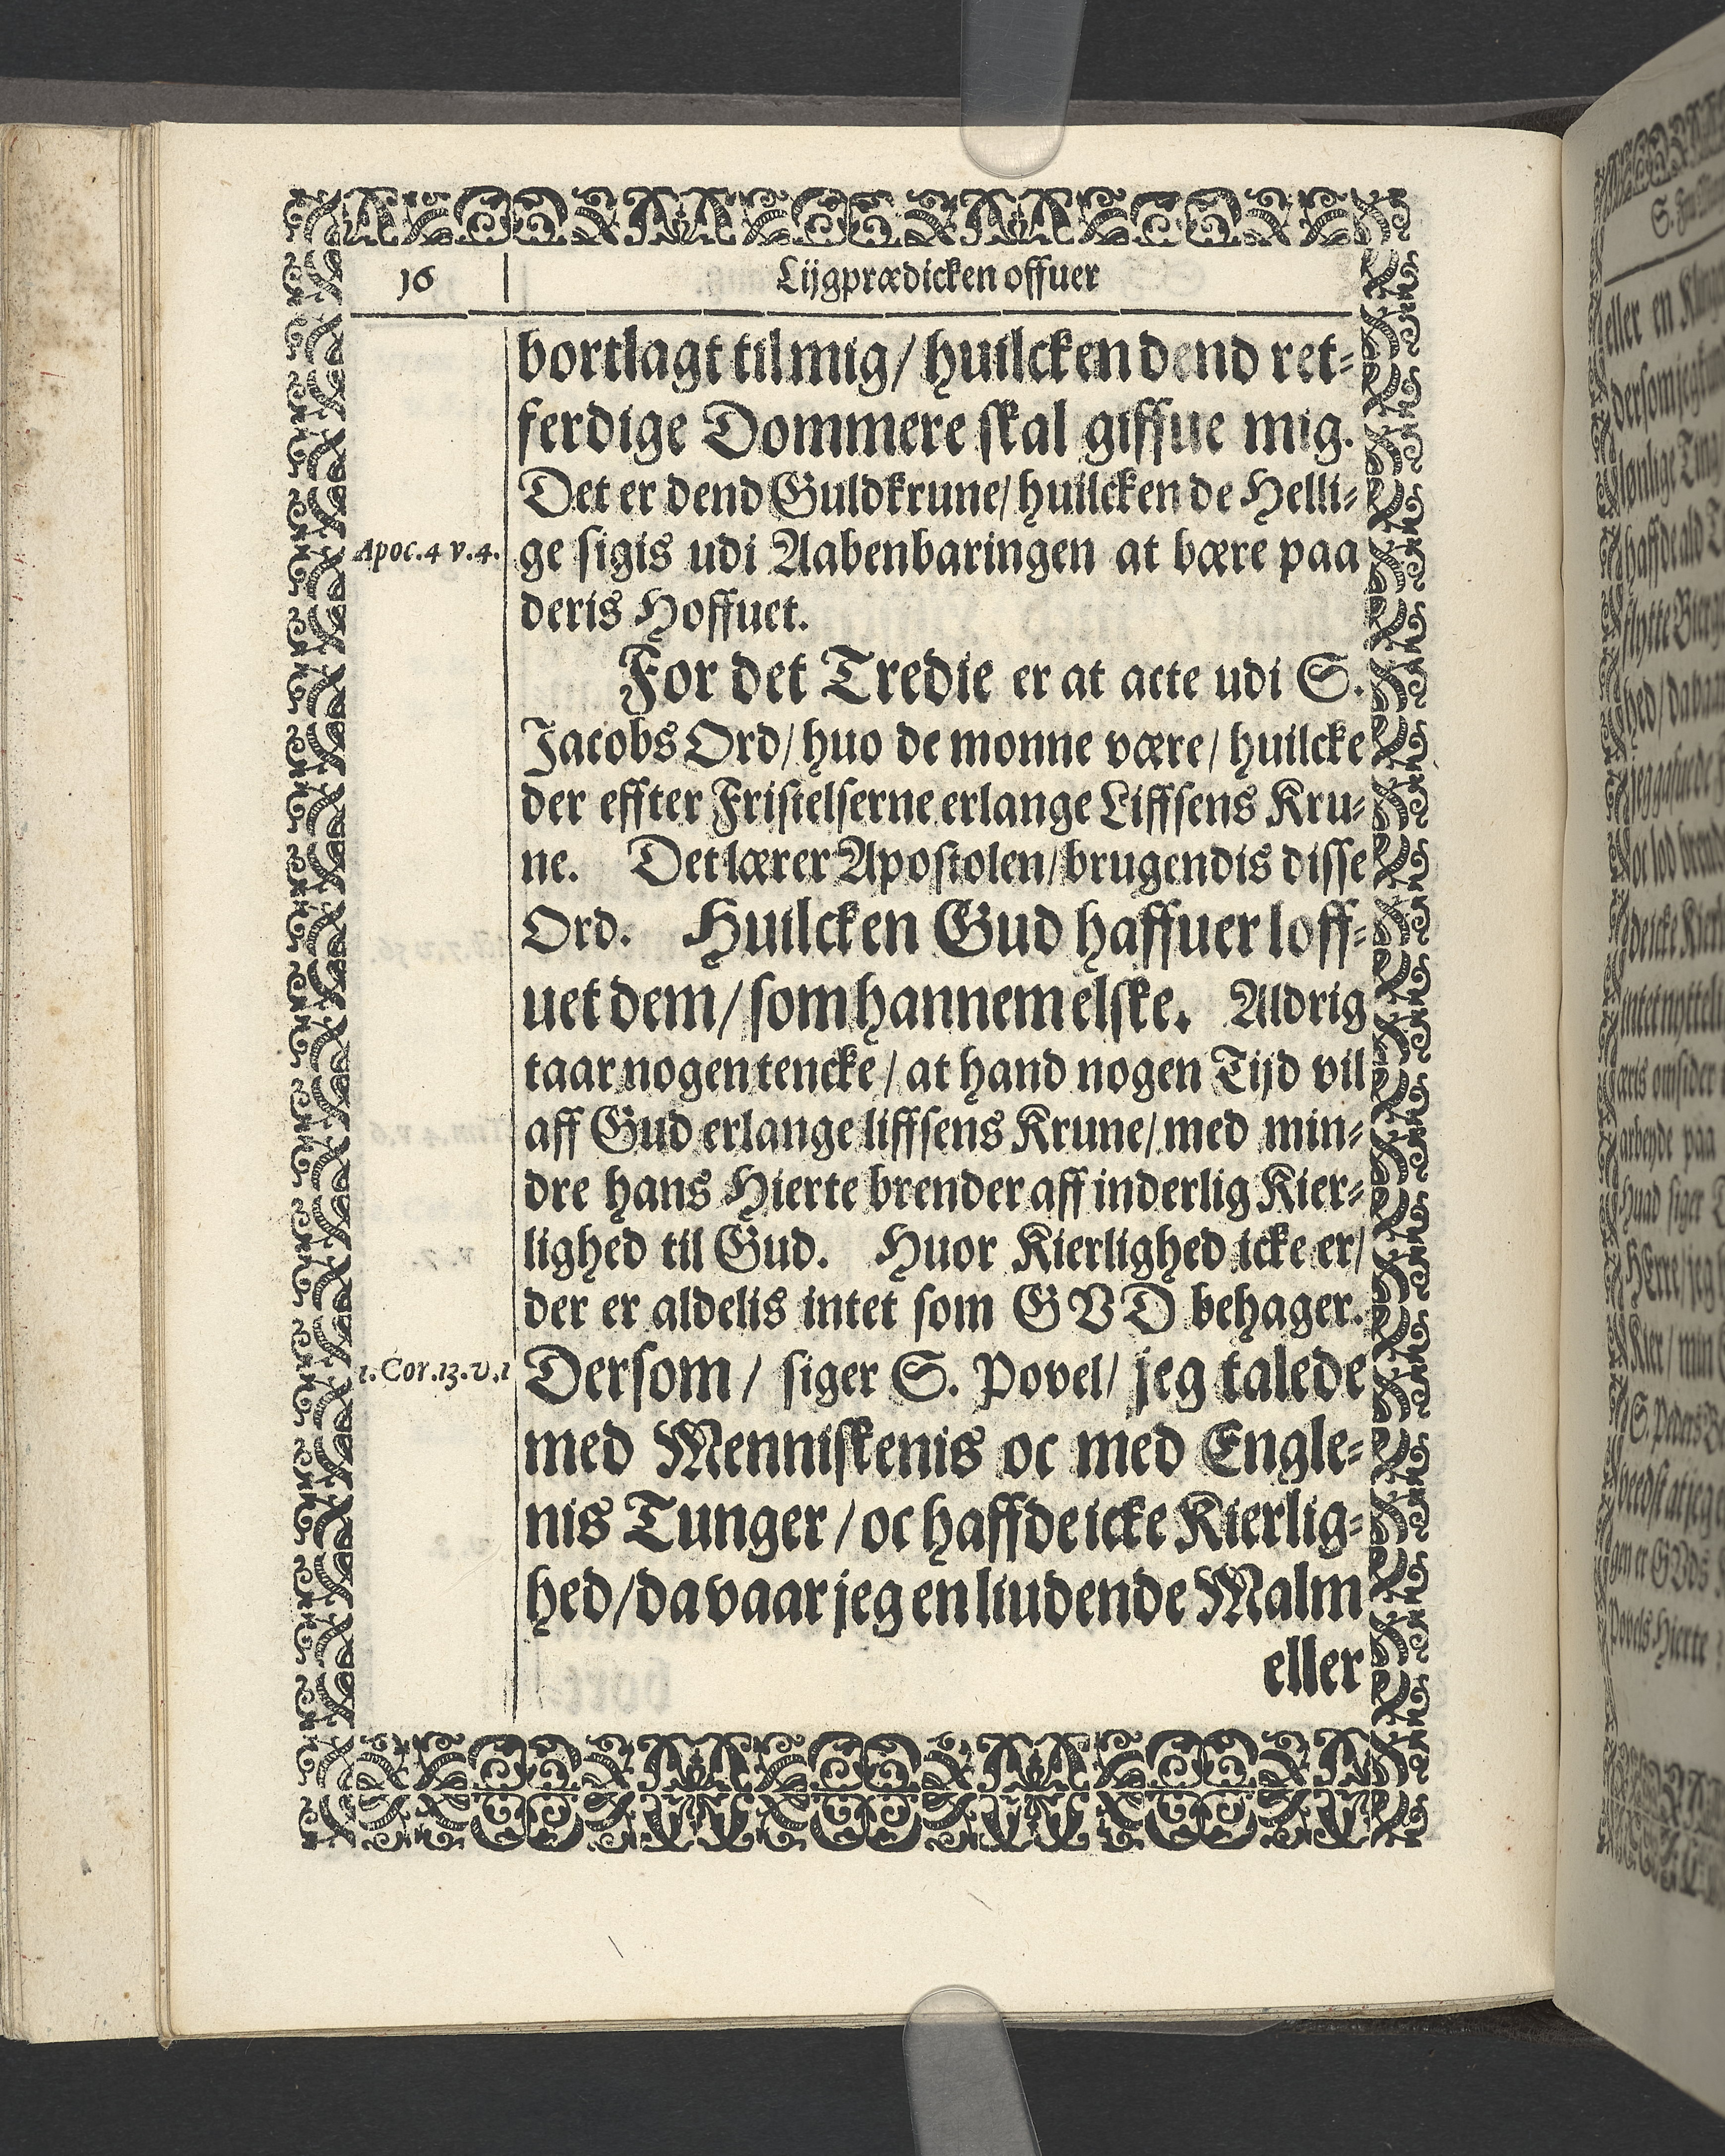 16
Lijgprædicken offuer
bortlagt til mig/ huilcken dend ret-
ferdige Dommere skal giffue mig.
Det er dend Guldkrune/ huilcken de Helli-
Apoc.4 v.4.
ge sigis udi Aabenbaringen at bære paa
deris Hoffuet.
For det Tredie er at acte udi S.
Jacobs Ord/ huo de monne være/ huilcke
der effter Fristelserne erlange Liffsens Kru-
ne. Det lærer Apostolen/ brugendis disse
Ord. Huilcken Gud haffuer loff-
uet dem/ som hannem elske. Aldrig
taar nogen tencke/ at hand nogen Tijd vil
aff Gud erlange liffsens Krune/ med min-
dre hans Hierte brender aff inderlig Kier-
lighed til Gud. Huor Kierlighed icke er/
der er aldelis intet som GVD behager.
1.Cor.13.v.1
Dersom/ siger S. Povel/ jeg talede
med Menniskenis oc med Engle-
nis Tunger/ oc haffde icke Kierlig-
hed/ da vaar jeg en liudende Malm
eller